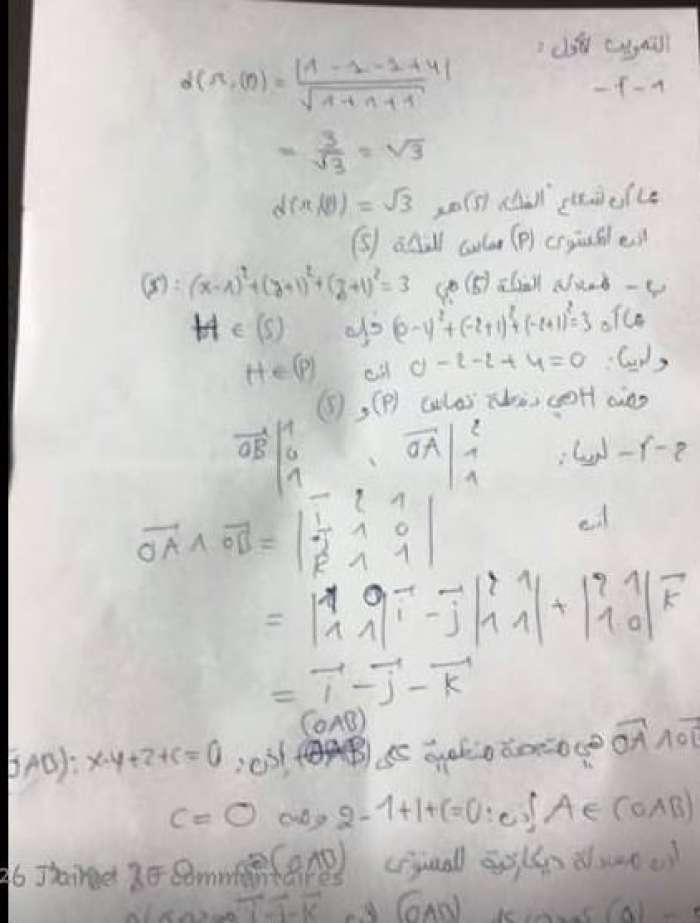 التمرين الأول :
1 - أ - d(Ω,(P)) = |1 - 1 - 1 + 4| / √(1+1+1)
= 3/√3 = √3
بما أن شعاع الفلكة (S) هو d(Ω,(P)) = √3
اذن المستوى (P) مماس للفلكة (S)
ب - معادلة الفلكة (S) هي (S) : (x-1)²+(y+1)²+(z+1)² = 3
بما أن (0-1)²+(-2+1)²+(-2+1)² = 3 فإن H ∈ (S)
ولدينا : 0 - 2 - 2 + 4 = 0 اذن H ∈ (P)
ومنه H هي نقطة تماس (P) و (S)
2 - أ - لدينا : OA | 2 1 1 ، OB | 1 0 1
اذن
OA ∧ OB = | i 2 1 / j 1 0 / k 1 1 |
= | 1 0 / 1 1 | i - j | 2 1 / 1 1 | + | 2 1 / 1 0 | k
= i - j - k
OA ∧ OB هي متجهة منظمية على (OAB) اذن : (OAB) : x-y+z+c = 0
A ∈ (OAB) اذن : 2-1+1+c=0 ومنه c = 0
اذن معادلة ديكارتية للمستوى (OAB)
26 J'aime 20 Commentaires
i - j - k (OAB)